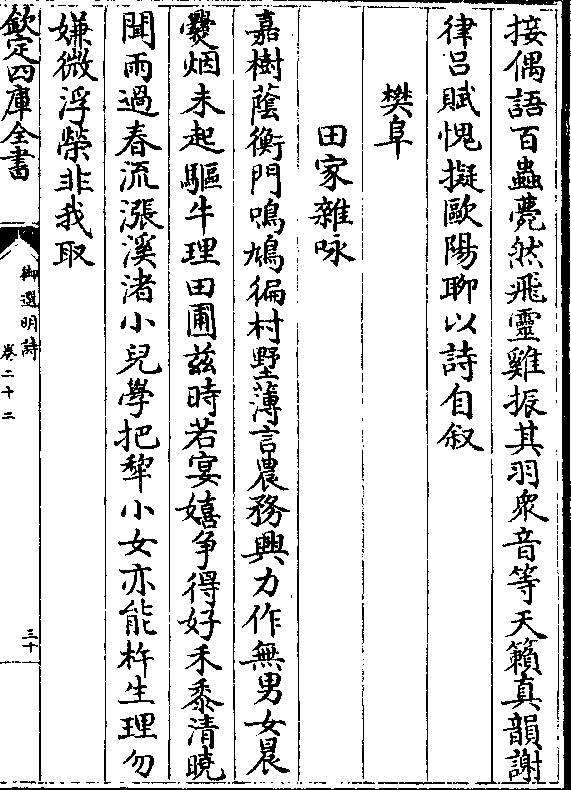 接偶語百蟲薨然飛靈雞振其羽衆音等天籟真韻謝
律呂賦愧擬歐陽聊以詩自叙
樊阜
田家雜咏
嘉樹蔭衡門鳴鳩徧村墅薄言農務興力作無男女晨
爨烟未起驅牛理田圃兹時若宴嬉争得好禾黍清曉
聞雨過春流漲溪渚小兒學把犂小女亦能杵生理勿
嫌微浮榮非我取
欽定四庫全書
御選明詩
卷二十二
三十